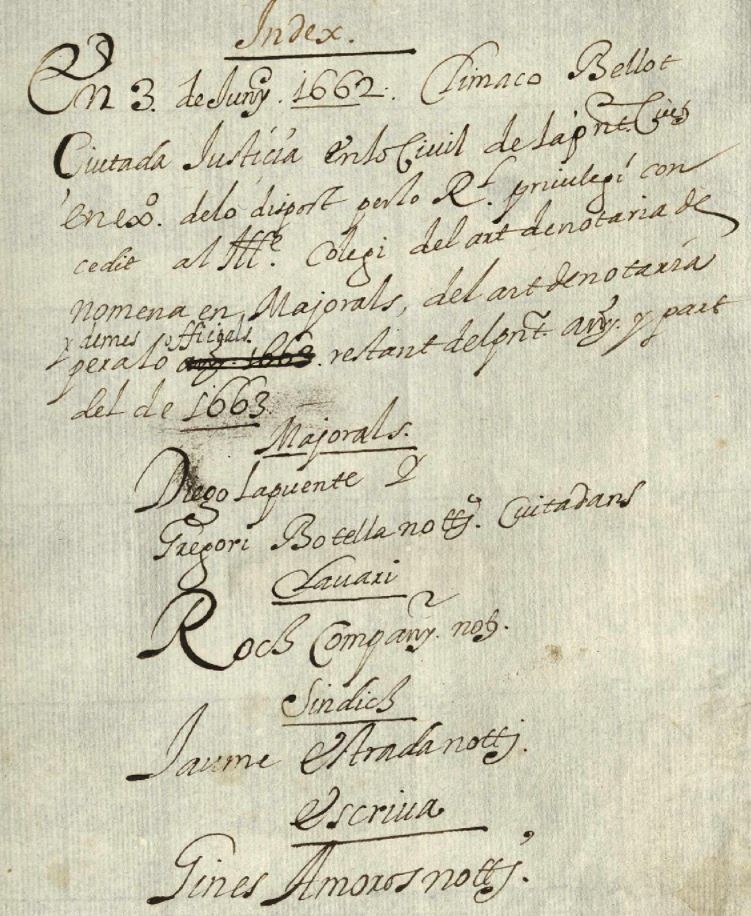 Index.
En 3. de Juny. 1662. Climaco Bellot
Ciutada Justicia en lo Civil de la pñt. Ciut
en exo. de lo dispost per lo Rl. priuilegi con
cedit al Ille. Colegi del art de notaria de
nomena en Majorals, del art de notaria
y demes officials.
pera lo any. 1663. restant del pñt. any. y part
del de 1663.
Majorals.
Diego Lapuente y
Gregori Botella notts. Ciutadans
Clauari
Roch Company. not.
Sindich
Jaume Estrada nott.
Escriua
Gines Amoros nott.